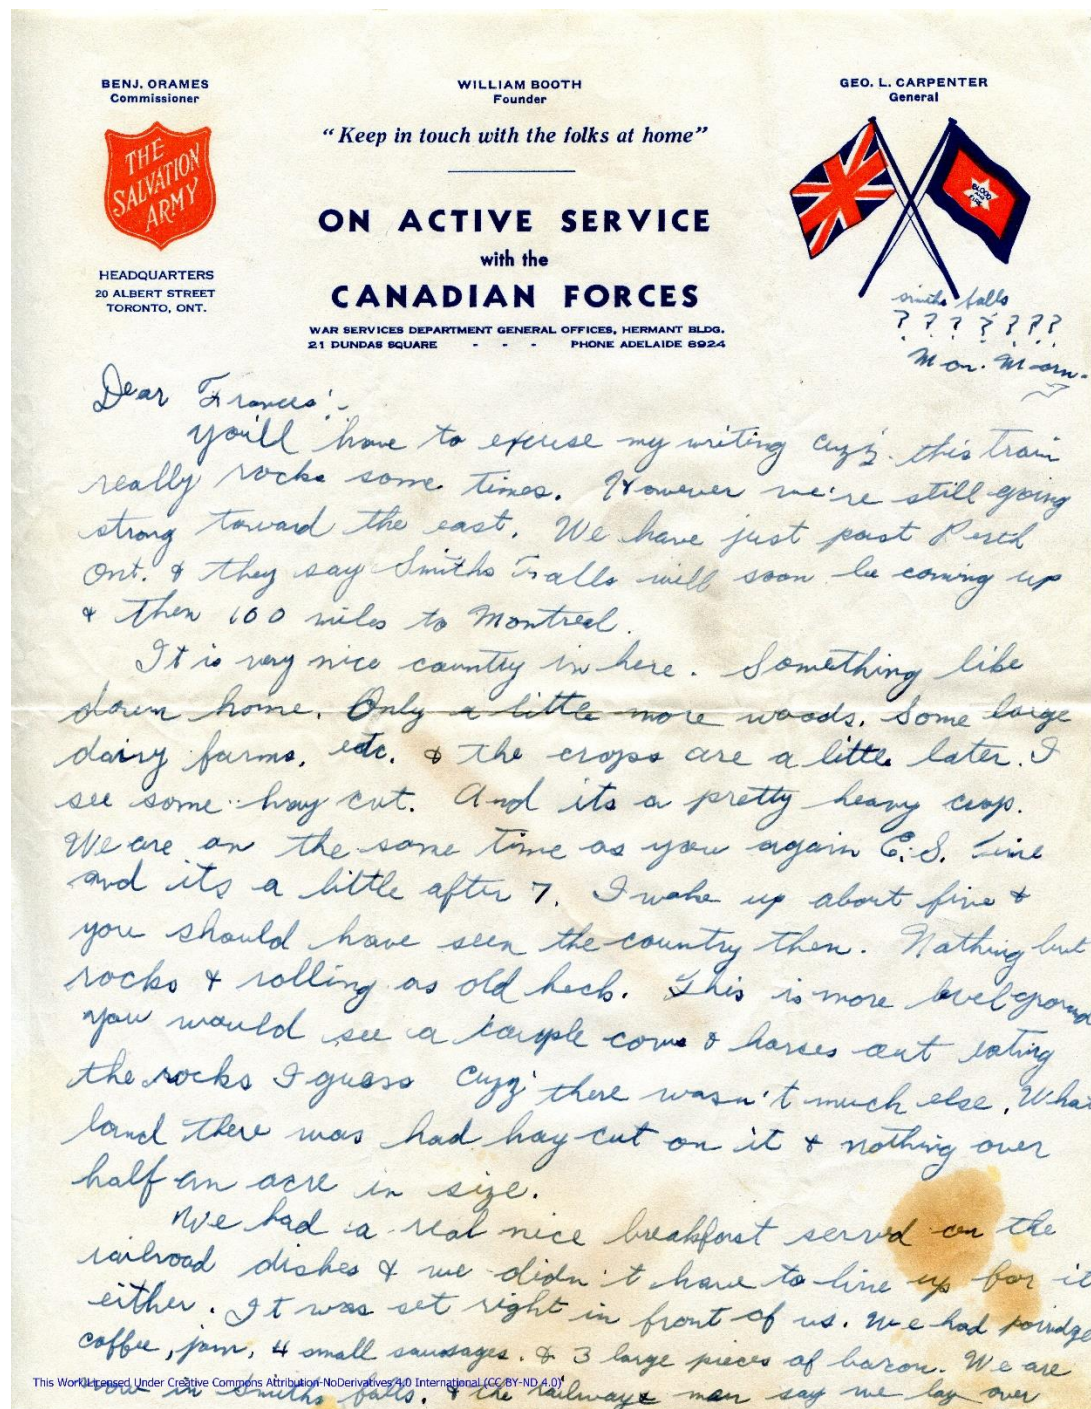 BENJ. ORAMES
Commissioner
WILLIAM BOOTH
Founder
GEO. L. CARPENTER
General
"Keep in touch with the folks at home"
THE
SALVATION
ARMY
BLOOD
AND
FIRE
ON ACTIVE SERVICE
with the
CANADIAN FORCES
HEADQUARTERS
20 ALBERT STREET
TORONTO, ONT.
WAR SERVICES DEPARTMENT GENERAL OFFICES, HERMANT BLDG.
21 DUNDAS SQUARE - - - PHONE ADELAIDE 8924
smiths falls
? ? ? ? ? ? ?
Mon. Morn.
Dear Frances:-
You'll have to excuse my writing cuzz this train
really rocks some times. However we're still going
strong toward the east. We have just past Perth
Ont. & they say Smiths Falls will soon be coming up
& then 100 miles to Montreal.
It is very nice country in here. Something like
down home. Only a little more woods. Some large
dairy farms, etc. & the crops are a little later. I
see some hay cut. And its a pretty heavy crop.
We are on the same time as you again E.S. Time
and its a little after 7. I woke up about five &
you should have seen the country then. Nothing but
rocks & rolling as old heck. This is more level ground
You would see a couple cows & horses out eating
the rocks I guess cuzz there wasn't much else. What
land there was had hay cut on it & nothing over
half an acre in size.
We had a real nice breakfast served on the
railroad dishes & we didn't have to line up for it
either. It was set right in front of us. We had porridge
coffee, jam, 4 small sausages. & 3 large pieces of bacon. We are
now in smiths falls. & the railways man say we lay over
This Work Licensed Under Creative Commons Attribution-NoDerivatives 4.0 International (CC BY-ND 4.0)